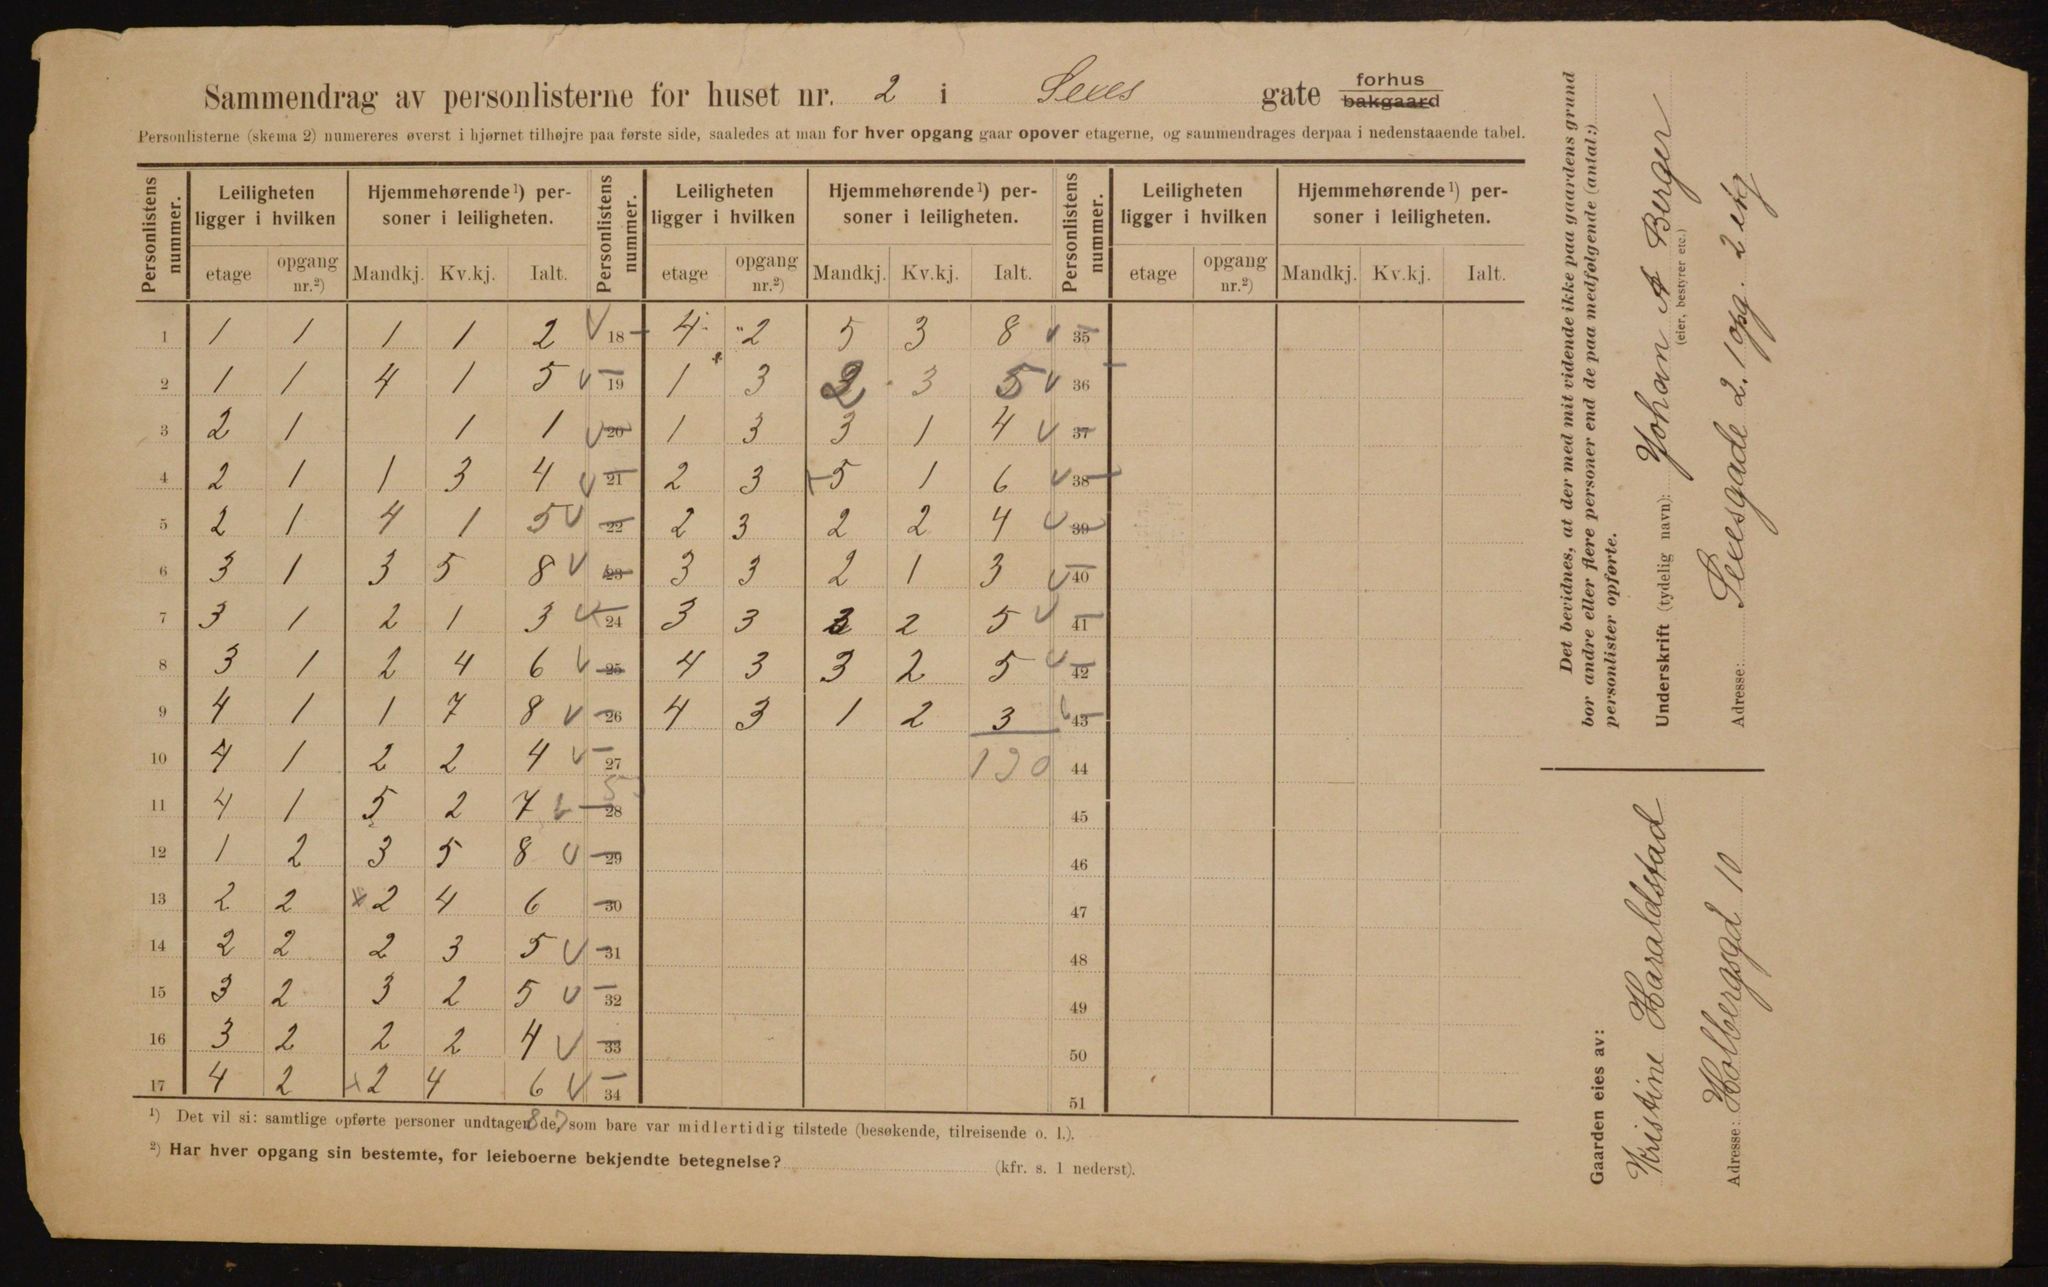 Sammendrag av personlisterne for huset nr. 2 i Seues gate forhus bakgaard
Personlisterne (skema 2) numereres øverst i hjørnet tilhøjre paa første side, saaledes at man for hver opgang gaar opover etagerne, og sammendrages derpaa i nedenstaaende tabel.
Personlistens nummer. Leiligheten ligger i hvilken Hjemmehørende¹) personer i leiligheten. Personlistens nummer. Leiligheten ligger i hvilken Hjemmehørende¹) personer i leiligheten. Personlistens nummer. Leiligheten ligger i hvilken Hjemmehørende¹) personer i leiligheten.
etage opgang nr.²) Mandkj. Kv.kj. Ialt. etage opgang nr.²) Mandkj. Kv.kj. Ialt. etage opgang nr.²) Mandkj. Kv.kj. Ialt.
1 1 1 1 1 2 18 4 2 5 3 8 35
2 1 1 4 1 5 19 1 3 2 3 5 36
3 2 1 1 1 20 1 3 3 1 4 37
4 2 1 1 3 4 21 2 3 5 1 6 38
5 2 1 4 1 5 22 2 3 2 2 4 39
6 3 1 3 5 8 23 3 3 2 1 3 40
7 3 1 2 1 3 24 3 3 3 2 5 41
8 3 1 2 4 6 25 4 3 3 2 5 42
9 4 1 1 7 8 26 4 3 1 2 3 43
10 4 1 2 2 4 27 130 44
11 4 1 5 2 7 28 45
12 1 2 3 5 8 29 46
13 2 2 2 4 6 30 47
14 2 2 2 3 5 31 48
15 3 2 3 2 5 32 49
16 3 2 2 2 4 33 50
17 4 2 2 4 6 34 51
87
¹) Det vil si: samtlige opførte personer undtagen de, som bare var midlertidig tilstede (besøkende, tilreisende o. l.).
²) Har hver opgang sin bestemte, for leieboerne bekjendte betegnelse? (kfr. s. 1 nederst).
Det bevidnes, at der med mit vidende ikke paa gaardens grund
bor andre eller flere personer end de paa medfølgende (antal:)
personlister opførte.
Underskrift (tydelig navn): Johan A Berger
(eier, bestyrer etc.)
Adresse: Seuesgade 2. 1 opg. 2 etg
Gaarden eies av:
Kristine Haraldstad
Adresse: Holbergsgd 10